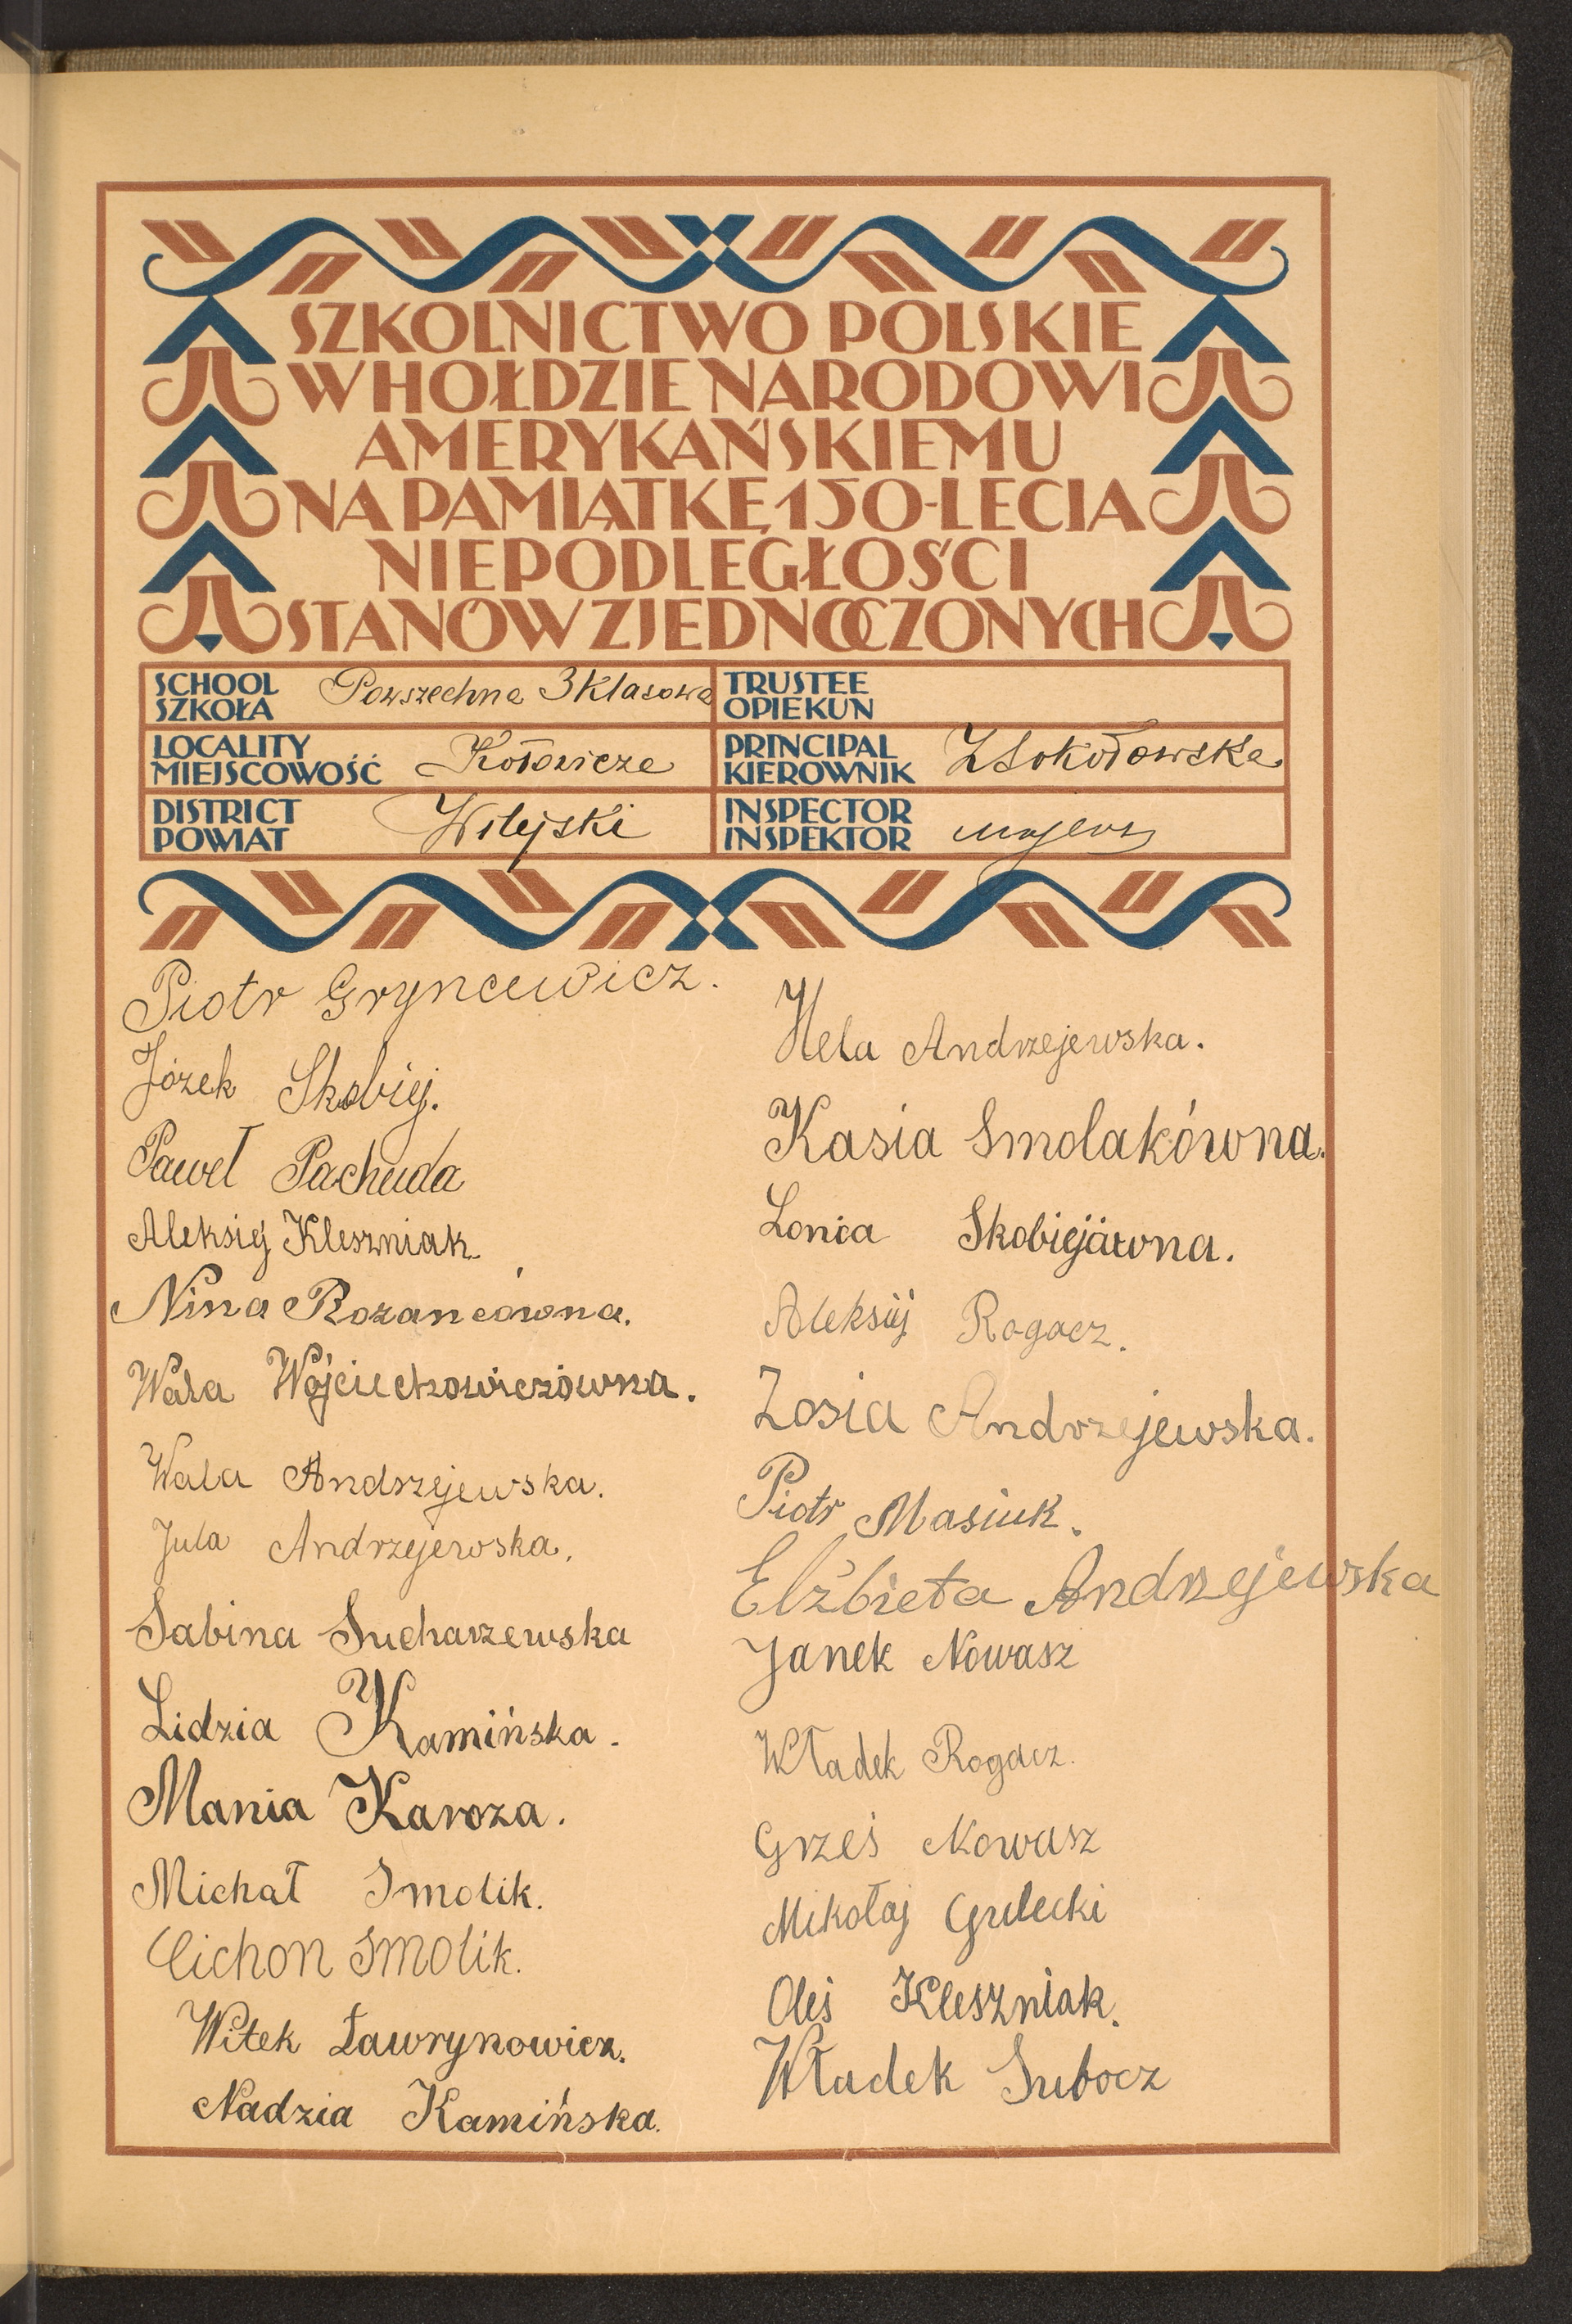 SZKOLNICTWO POLSKIE
W HOŁDZIE NARODOWI
AMERYKAŃSKIEMU
NA PAMIĄTKĘ 150-LECIA
NIEPODLEGŁOŚCI
STANÓW ZJEDNOCZONYCH
SCHOOL
SZKOŁA
Powszechna 3 Klasowa
TRUSTEE
OPIEKUN
LOCALITY
MIEJSCOWOŚĆ
Kołowicze
PRINCIPAL
KIEROWNIK
ZSokołowska
DISTRICT
POWIAT
Wilejski
INSPECTOR
INSPEKTOR
Piotr Gryncewicz.
Józek Skobiej.
Paweł Pachuda
Aleksiej Kleszniak.
Nina Rozancówna.
Wala Wojciechowiczówna.
Wala Andrzejewska.
Jula Andrzejewska.
Sabina Sucharzewska
Lidzia Kamińska.
Mania Karoza.
Michał Smolik.
Cichon Smolik.
Witek Ławrynowicz.
Nadzia Kamińska.
Hela Andrzejewska.
Kasia Smolakówna.
Lonia Skobiejawna.
Aleksiij Rogacz.
Zosia Andrzejewska.
Piotr Masiuk.
Elżbieta Andrzejewska
Janek Nowasz
Władek Rogacz.
Grześ Nowasz
Mikołaj Gulecki
Oleś Kleszniak.
Władek Subocz